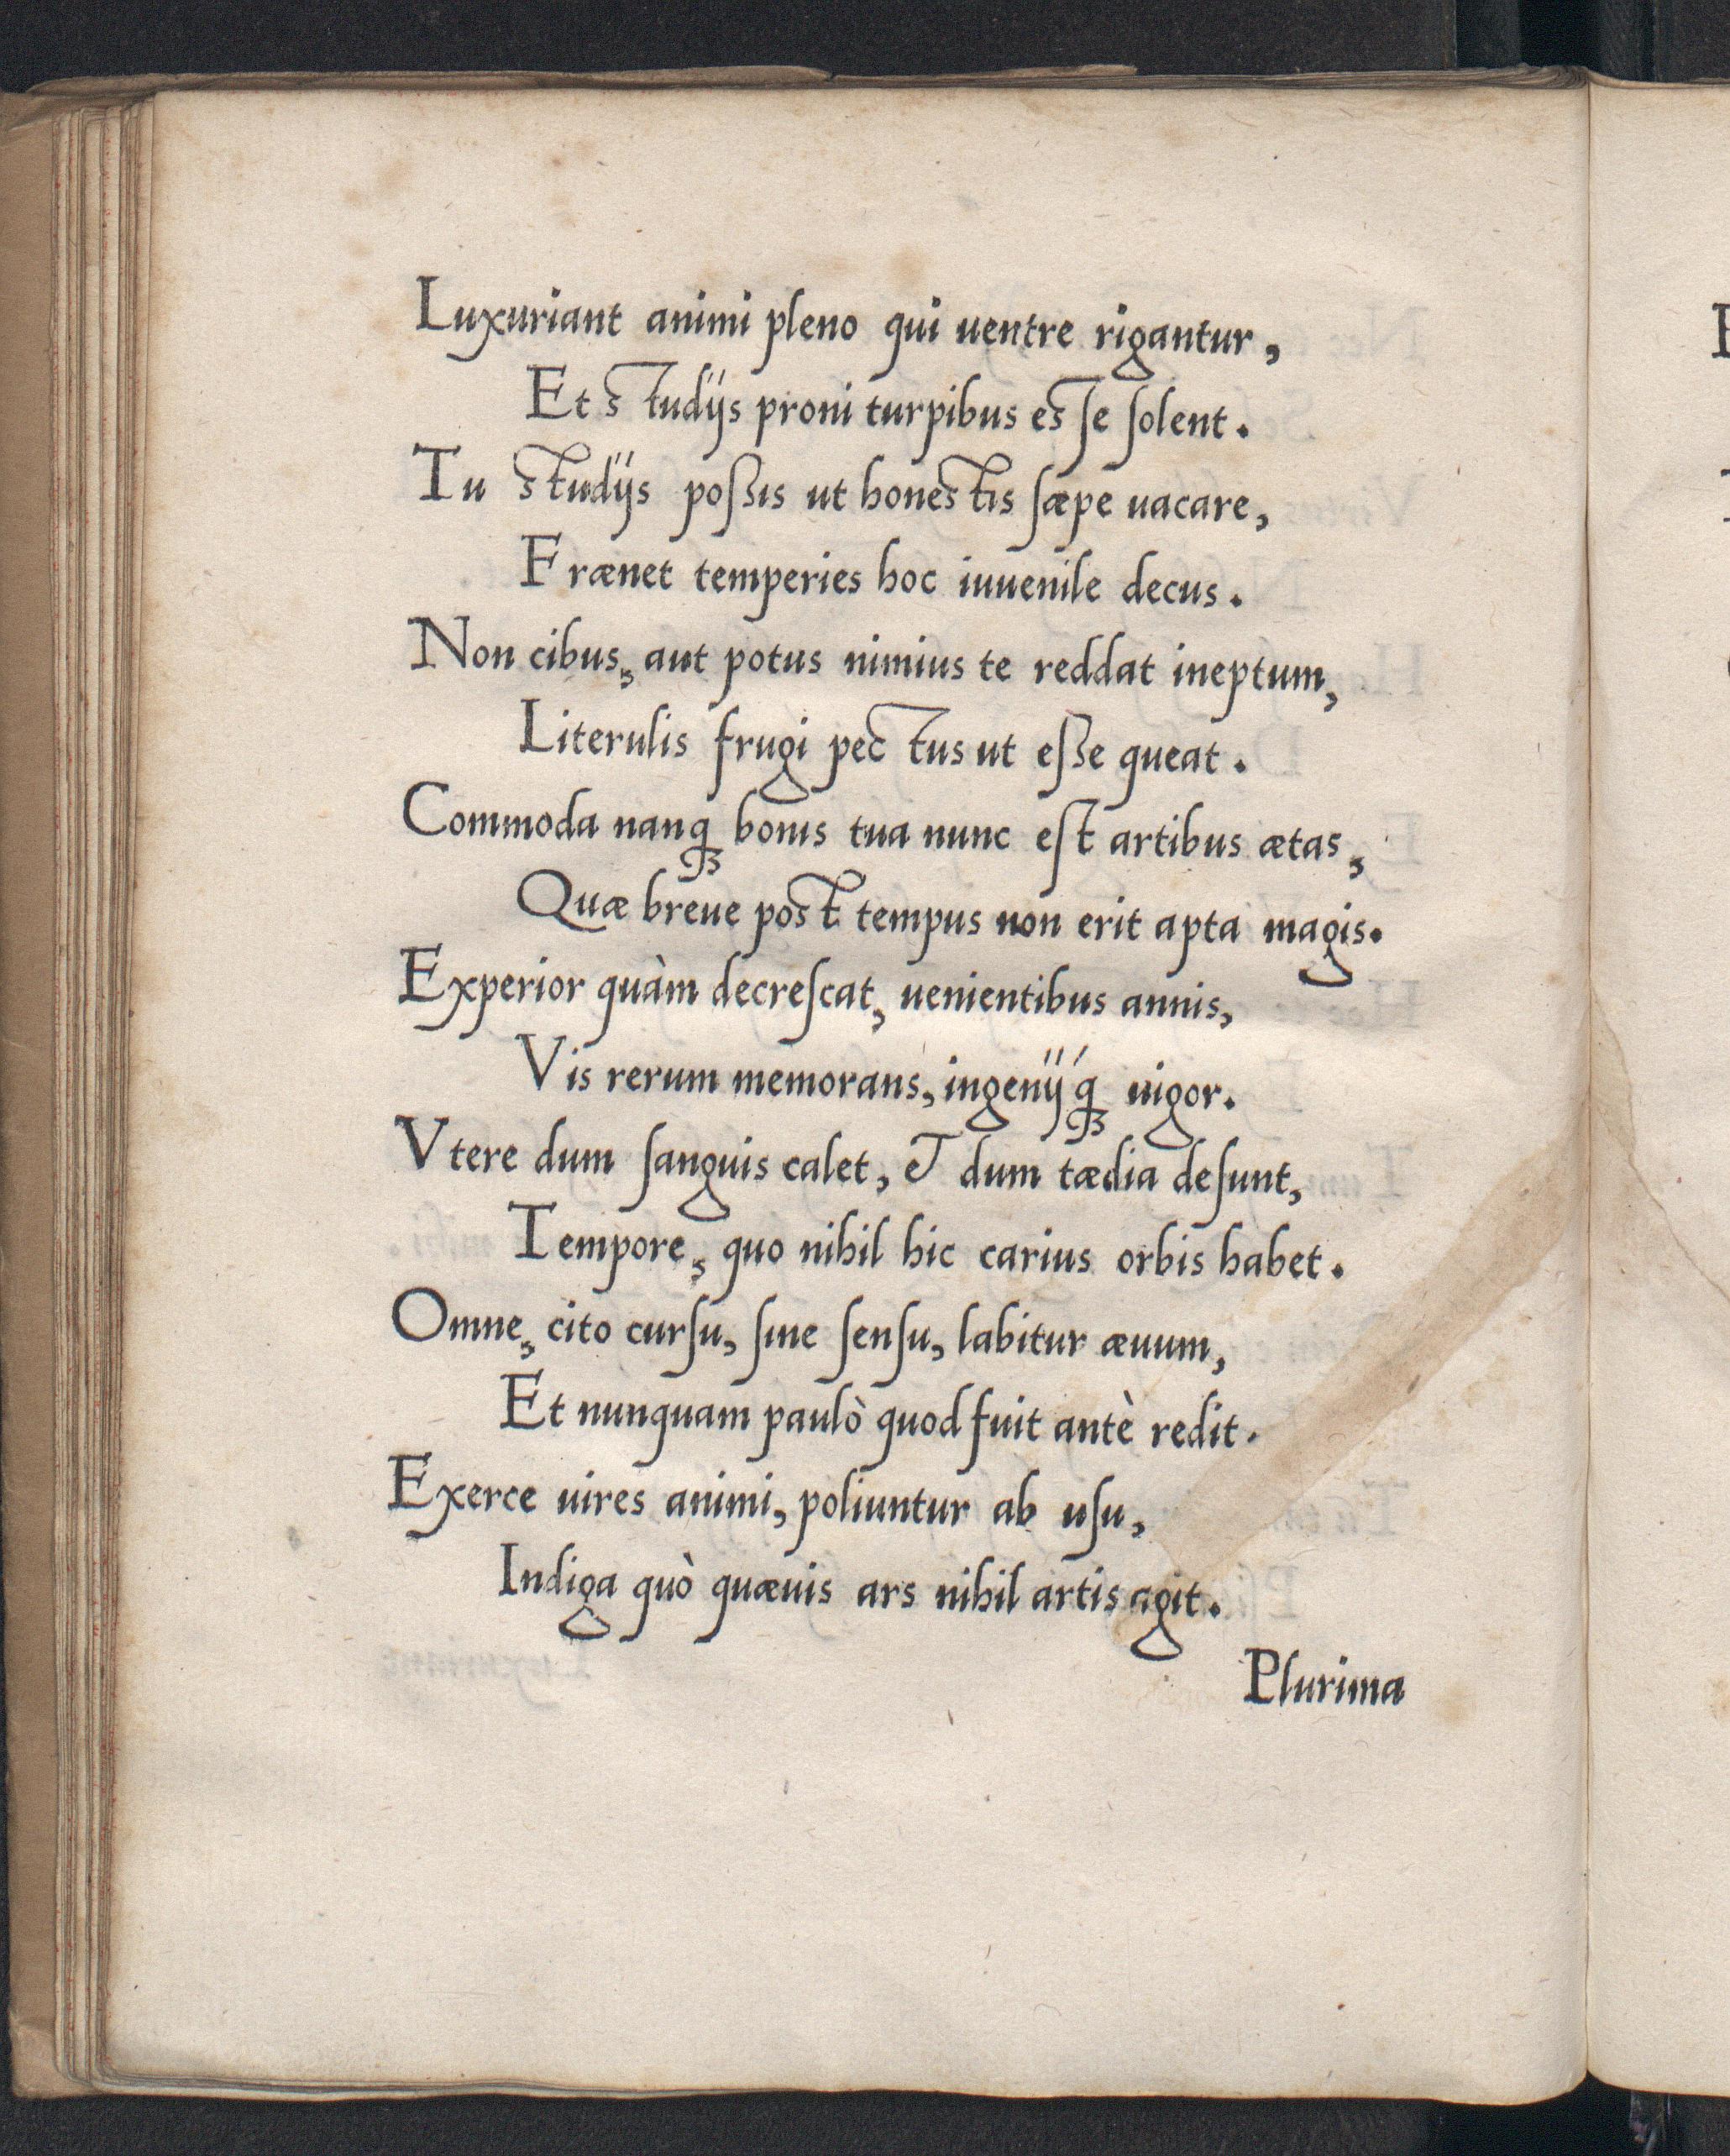 Luxuriant animi pleno qui uentre rigantur,
Et studijs proni turpibus esſe ſolent.
Tu studijs poßis ut honestis ſæpe uacare,
Frænet temperies hoc iuuenile decus.
Non cibus, aut potus nimius te reddat ineptum,
Literulis frugi pectus ut eße queat.
Commoda nanq́ꝫ bonis tua nunc eſt artibus ætas,
Quæ breue post tempus non erit apta magis.
Experior quàm decreſcat, uenientibus annis,
Vis rerum memorans, ingenijq́ꝫ uigor.
Vtere dum ſanguis calet, & dum tædia deſunt,
Tempore, quo nihil hic carius orbis habet.
Omne, cito curſu, ſine ſenſu, labitur æuum,
Et nunquam paulò quod fuit antè redit.
Exerce uires animi, poliuntur ab uſu,
Indiga quò quæuis ars nihil artis agit.
Plurima